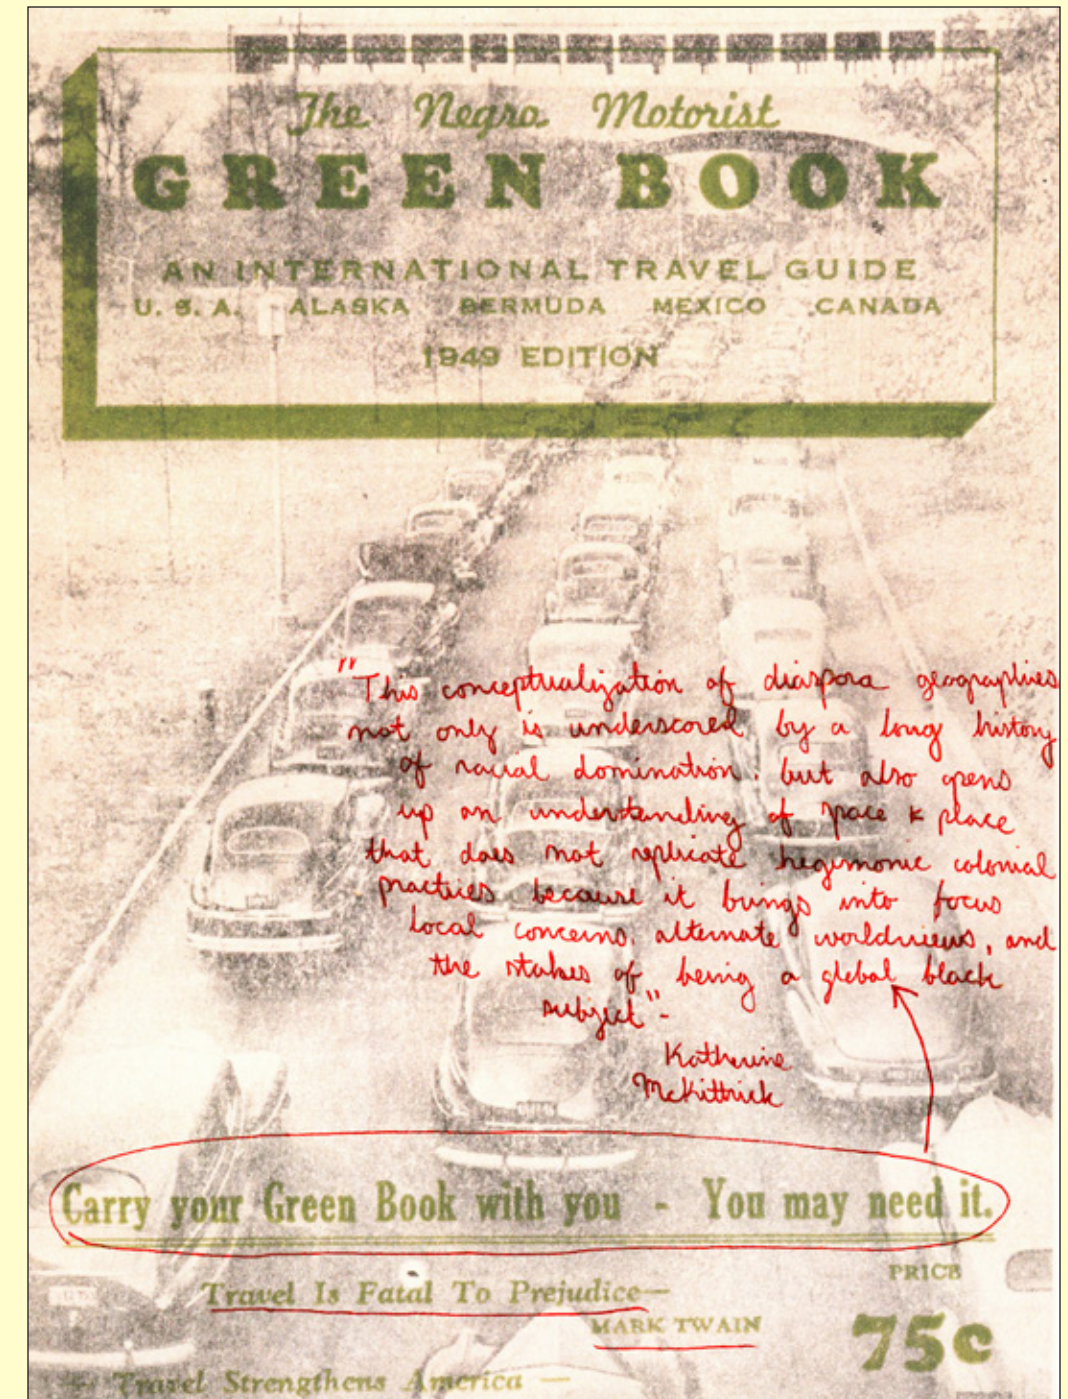 The Negro Motorist
GREEN BOOK
AN INTERNATIONAL TRAVEL GUIDE
U. S. A. ALASKA BERMUDA MEXICO CANADA
1949 EDITION
"This conceptualization of diaspora geographies
not only is underscored by a long history
of racial domination. but also opens
up an understanding of space & place
that does not replicate hegemonic colonial
practices because it brings into focus
local concerns, alternate worldviews, and
the stakes of being a global black
subject" -
Katherine
McKittrick
Carry your Green Book with you - You may need it.
PRICE
75c
Travel Is Fatal To Prejudice—
MARK TWAIN
Travel Strengthens America —